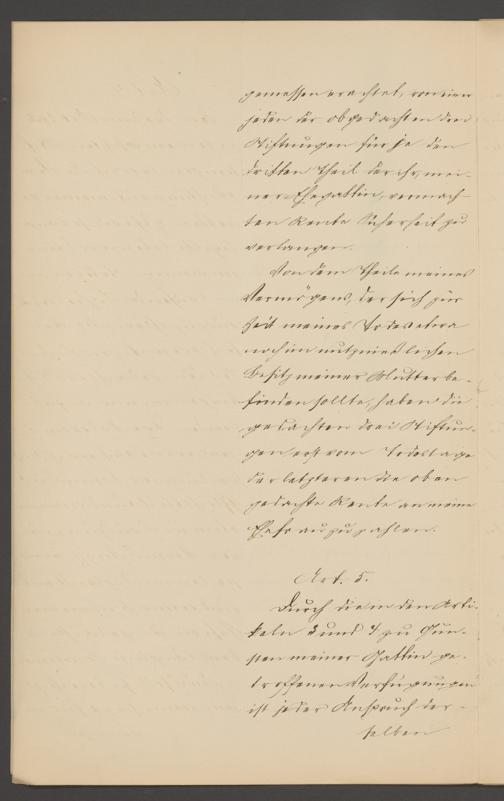 gemessen erachtet, von einer
jeden der obgedachten drei
Stiftungen für je den
dritten Theil der ihr, mei-
ner Ehegattin, vermach-
ten Rente Sicherheit zu
verlangen.
Von dem Theile meines
Vermögens, der sich zur
Zeit meines Todes etwa
noch im nutznießlichen
Besitz meiner Mutter be-
finden sollte, haben die
gedachten drei Stiftun-
gen erst vom Todestage
der letzteren die oben
gedachte Rente an meine
zu zahlen.
Art. 5.
Durch die in den Arti-
keln 3 und 4 zu Gun-
sten meiner Gattin ge-
troffenen Verfügungen
ist jeder Anspruch der-
selben